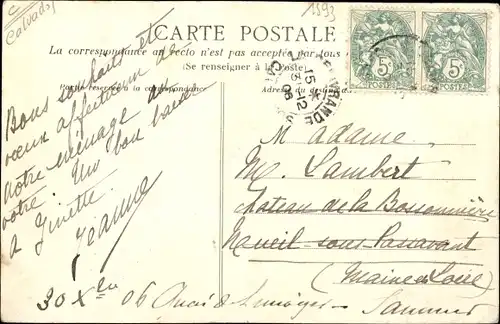 C
Calvados
1593
CARTE POSTALE
La correspondance au recto n'est pas acceptée par tous
(Se renseigner à la Poste)
Partie réservée à la correspondance
Adresse du destina
5c
5c
POSTES
POSTES
GUÉRANDE
15
5-12
06
Bons souhaits et
vœux affectueux de
notre ménage au
vôtre. Un bon baiser
à Ginette.
Jeanne
30 Xbre 06
Madame
M. Lambert
Château de la Bossonnière
Nueil sous Passavant
(Maine et Loire)
Quai de Limoges
Saumur